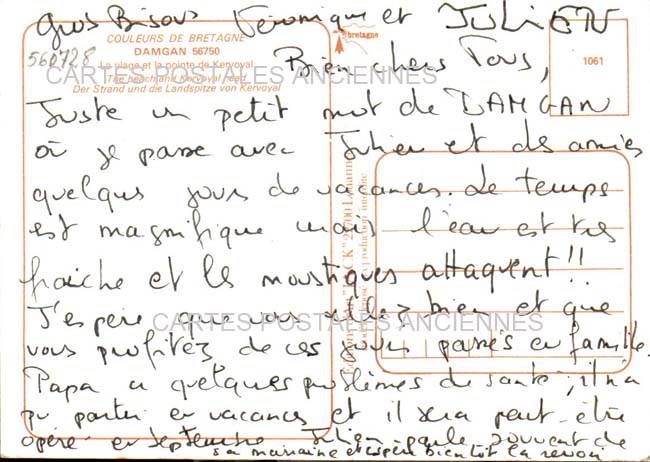 Gros Bisous Véronique et JULIEN
COULEURS DE BRETAGNE
DAMGAN 56750
La plage et la pointe de Kervoyal
The beach and Kervoyal head
Der Strand und die Landspitze von Kervoyal
560728
bretagne
1061
CARTES POSTALES ANCIENNES
Bien chers Tous,
Juste un petit mot de DAMGAN
où je passe avec Julien et des amies
quelques jours de vacances. Le temps
est magnifique mais l'eau est très
fraiche et les moustiques attaquent!!
J'espère que vous allez bien et que
CARTES POSTALES ANCIENNES
vous profitez de ces jours passés en famille.
Papa a quelques problèmes de santé, il n'a
pu partir en vacances et il sera peut-être
opéré en septembre Julien parle souvent de
sa marraine et espère bientôt la revoir
Reproduction interdite